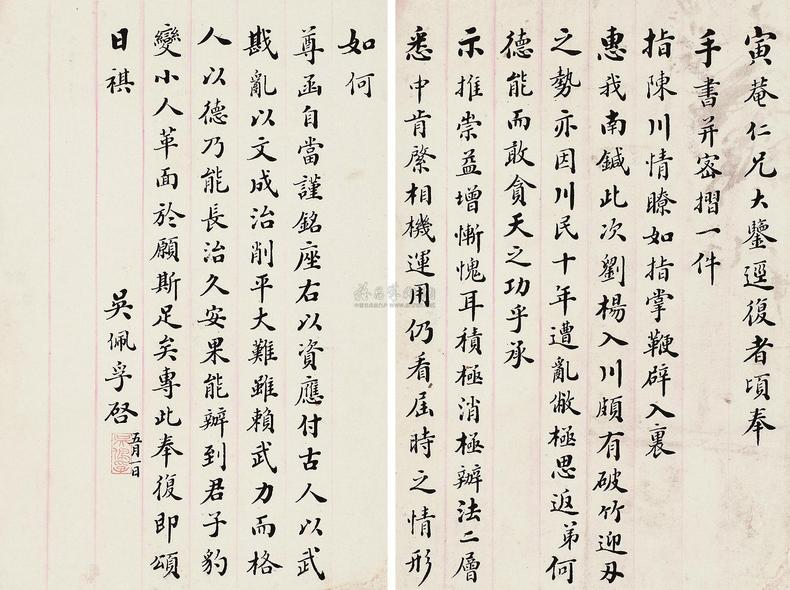 寅菴仁兄大鑒逕復者頃奉
手書并密摺一件
指陳川情瞭如指掌鞭辟入裏
惠我南鍼此次劉楊入川頗有破竹迎刃
之勢亦因川民十年遭亂敝極思返弟何
德能而敢貪天之功乎承
示推崇益增慚愧耳積極消極辦法二層
悉中肯綮相機運用仍看屆時之情形
如何
尊函自當謹銘座右以資應付古人以武
戡亂以文成治削平大難雖賴武力而格
人以德乃能長治久安果能辦到君子豹
變小人革面於願斯足矣專此奉復即頌
日祺
吳佩孚啓
五月一日